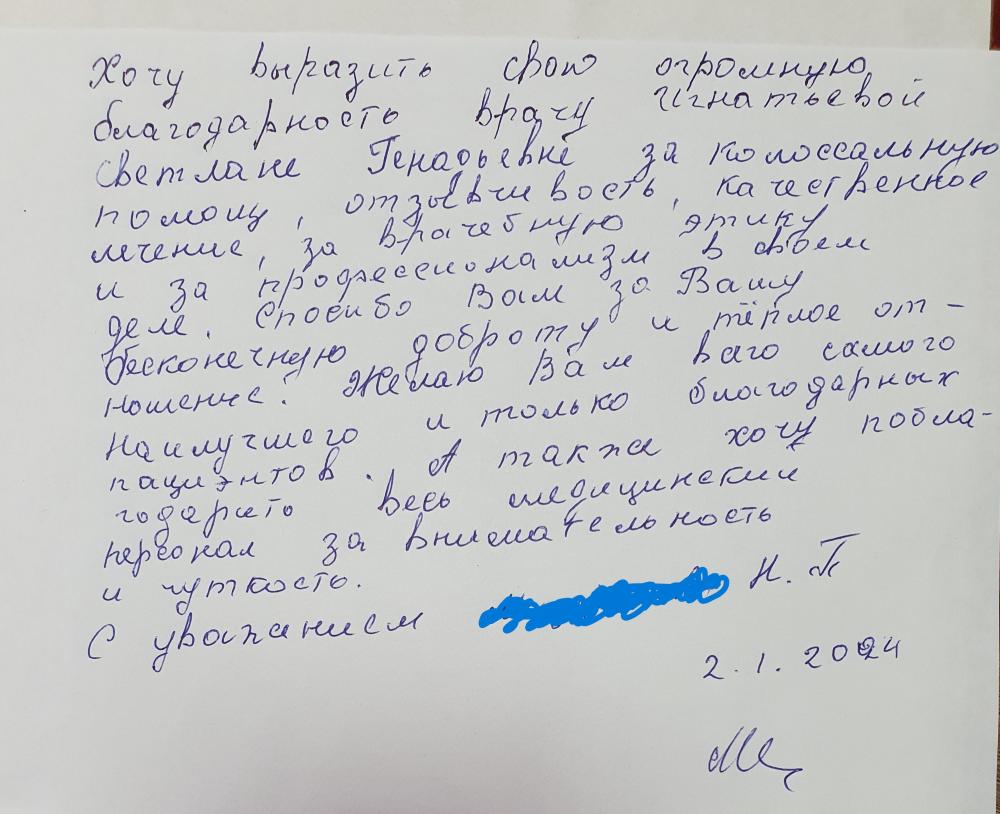 Хочу выразить свою огромную
благодарность врачу Игнатьевой
Светлане Генадьевне за колоссальную
помощь, отзывчивость, качественное
лечение, за врачебную этику
и за профессионализм в своем
деле. Спосибо Вам за Вашу
бесконечную доброту и тёплое от-
ношение. Желаю Вам ваго самого
наилучшего и только благодарных
пациэнтов. А также хочу побла-
годарить весь медицинский
персонал за внимательность
и чуткость.
С уважанием Н. П
2.1.2024